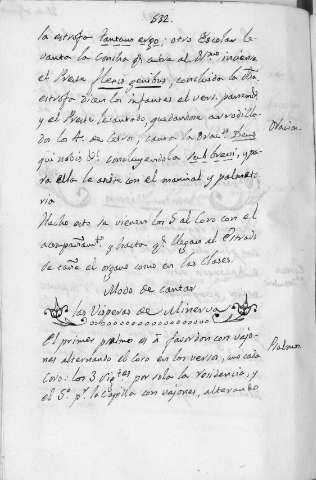 532.
la estrofa Tantum ergo; otro Escolan le-
vanta la Concha q.e cubre al D.mo inciensa
el Preste flexis genibus, concluida la dha
estrofa dicen los infantes el vers. Panem,
y el Preste levantado, quedandose arrodilla-
dos los 4. de Cetro, canta la Orac.n Deus
Oracion.
qui nobis &. concluyendola sub brevi, y pa-
ra ella le asiste con el manual y palmato-
ria
Hecho esto se vienen los S al Coro con el
acompañam.to y hasta q.e llegan al Estrado
se tañe el organo como en las clases.
Modo de cantar
las Visperas de Minerva
El primer psalmo es à favordon con vajo-
Psalmos
nes alternando el Coro en los versos, uno cada
Coro: los 3 sig.tes por sola la residencia, y
el 5.o p.r la Capilla con vajones, alternando